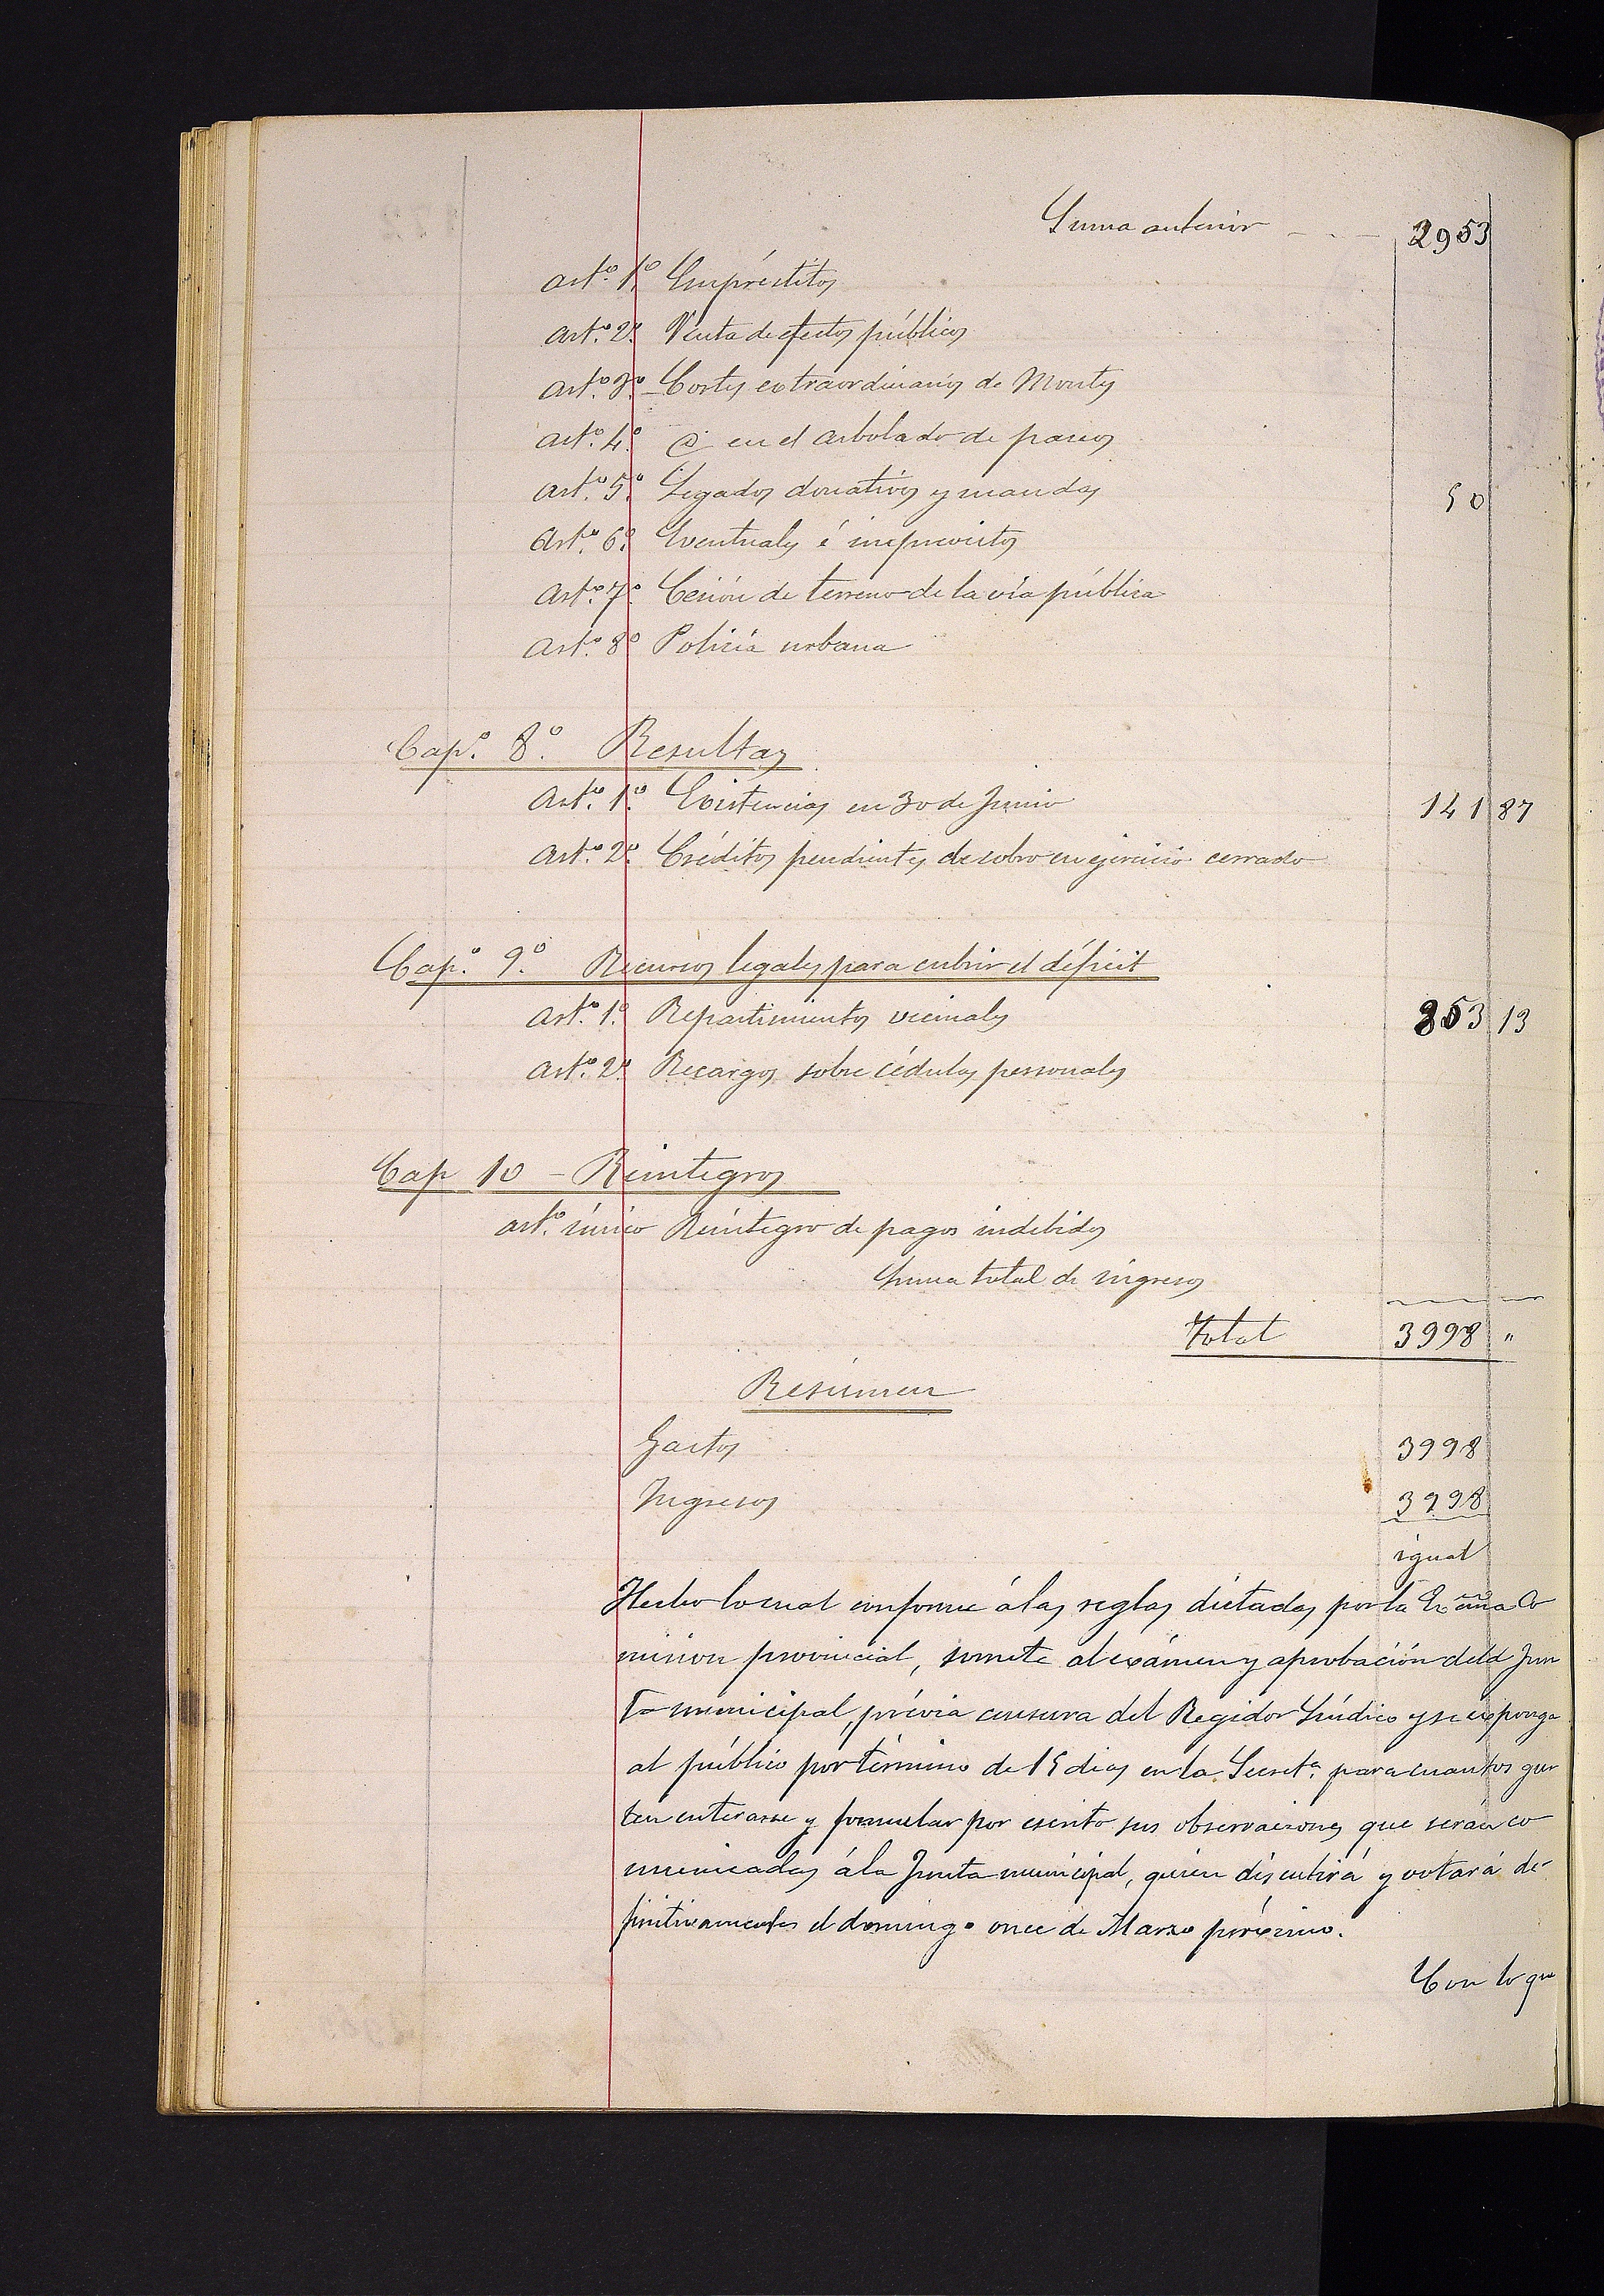 Suma anterior 2953
Artº. 1º. Empréstitos
Artº. 2º. Venta de efectos públicos
Artº. 3º. Cortes extraordinarios de Montes
Artº. 4º. @ en el arbolado de paseos
Artº. 5º. Legados donativos y mandas 50
Artº. 6º. Eventuales é imprevistos
Artº. 7º. Cesión de terreno de la via pública
Artº. 8º Policía urbana
Capº. 8º. Resultas
Artº. 1º. Existencias en 30 de Junio 141 87
Artº. 2º. Créditos pendientes de cobro en ejercicio cerrado
Capº. 9º. Recursos legales para cubrir el déficit
Artº. 1º. Repartimientos vecinales 853 13
Artº. 2º. Recargos sobre cédulas personales
Cap 10 - Reintegros
artº. único Reintegro de pagos indebidos
Suma total de ingresos
Total 3998 "
Resúmen
Gastos 3998
Ingresos 3998
igual
Hecho lo cual conforme á las reglas dictadas por la Exᵐᵃ Co
mision provincial, somete al exámen y aprobación de la Jun
ta municipal, prévia censura del Regidor Síndico y se exponga
al público por término de 15 dias en la Secretª. para cuantos gus
ten enterarse y formular por escrito sus observaciones que serán co
municadas á la Junta municipal, quien discutirá y votará de-
finitivamente el domingo once de Marzo próximo.
Con lo que